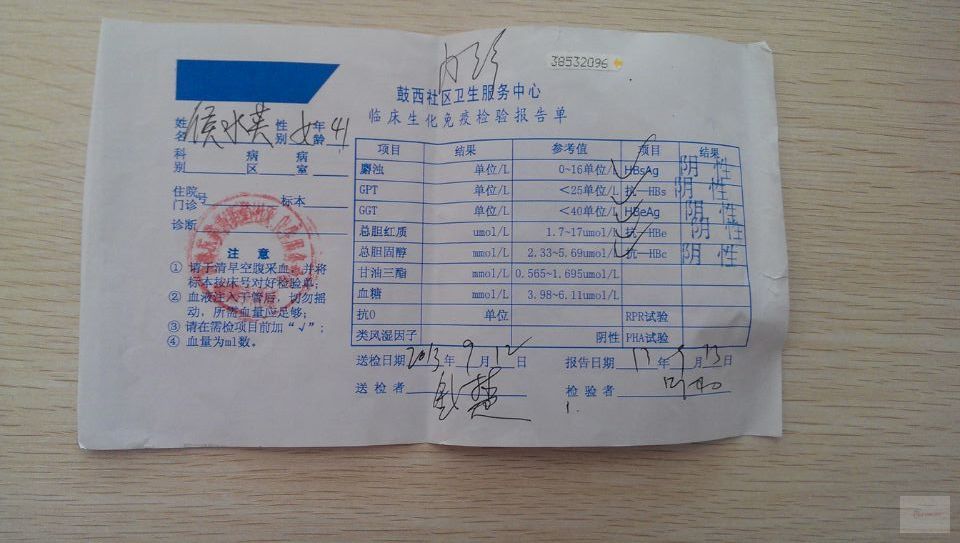 38532096
鼓西社区卫生服务中心
临床生化免疫检验报告单
姓名 性别 女 年龄 41
科别 病区 病室
住院门诊号 标本
诊断
注 意
① 请于清早空腹采血，并将
标本按床号对好检验单；
② 血液注入干管后，切勿摇
动，所需血量应足够；
③ 请在需检项目前加“√”；
④ 血量为ml数。
项目 结果 参考值 项目 结果
麝浊 单位/L 0~16单位/L √ HBsAg 阴 性
GPT 单位/L <25单位/L √ 抗—HBs 阴 性
GGT 单位/L <40单位/L √ HBeAg 阴 性
总胆红质 umol/L 1.7~17umol/L √ 抗—HBe 阴 性
总胆固醇 mmol/L 2.33~5.69umol/L √ 抗—HBc 阴 性
甘油三酯 mmol/L 0.565~1.695umol/L
血糖 mmol/L 3.98~6.11umol/L
抗0 单位 RPR试验
类风湿因子 阴性 PHA试验
送检日期 2013 年 9 月 12 日 报告日期 年 9 月 13 日
送检者 检验者